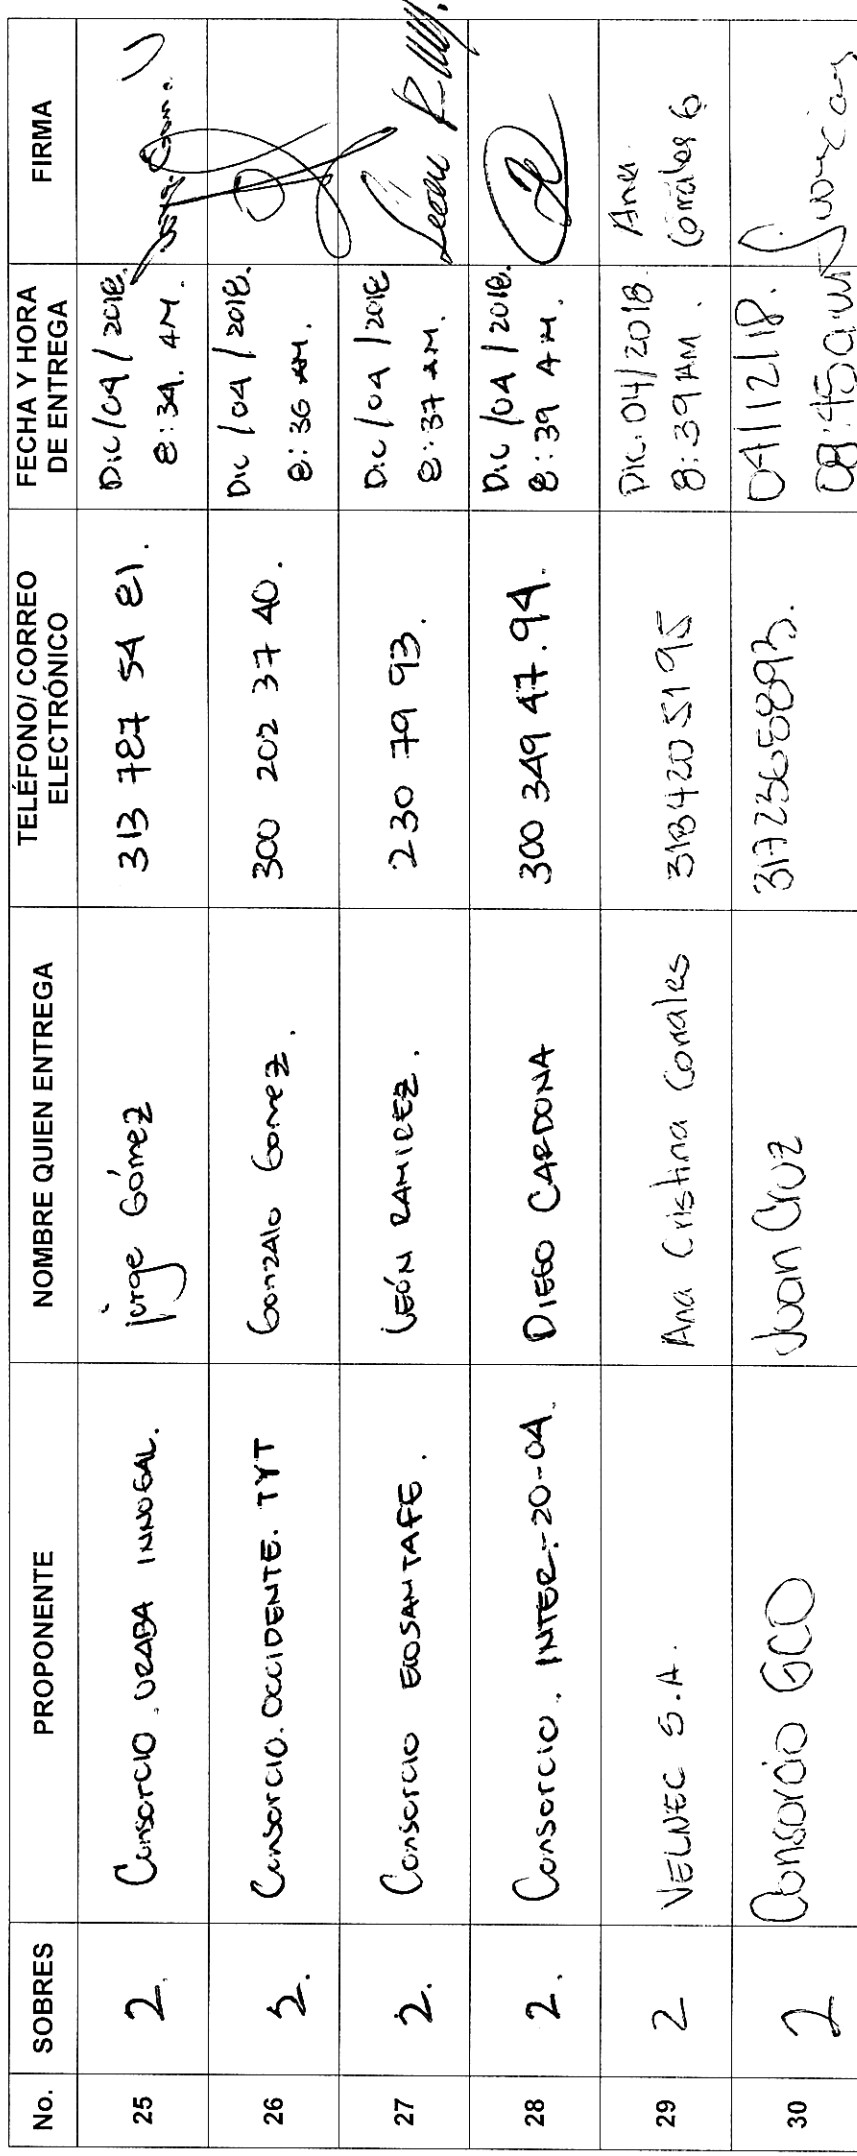 No. SOBRES PROPONENTE NOMBRE QUIEN ENTREGA TELÉFONO/ CORREO ELECTRÓNICO FECHA Y HORA DE ENTREGA FIRMA
25 2. Consorcio URABA INNOGAL. jorge Gómez 313 787 54 81. Dic/04/2018. 8:34. AM.
26 2. Consorcio. OCCIDENTE. TYT Gonzalo Gomez. 300 202 37 40. Dic/04/2018. 8:36 AM.
27 2. Consorcio ECOSANTAFE. LEÓN RAMIREZ. 230 79 93. Dic/04/2018 8:37 AM.
28 2. Consorcio. INTER.-20-04. DIEGO CARDONA 300 349 47.94. Dic/04/2018. 8:39 AM.
29 2 VELNEC S.A. Ana Cristina Corrales 3184205195 Dic.04/2018. 8:39 AM. Ana Corrales G
30 2 Consorcio GCO Juan Cruz 3172365893. 04/12/18. 08:45am